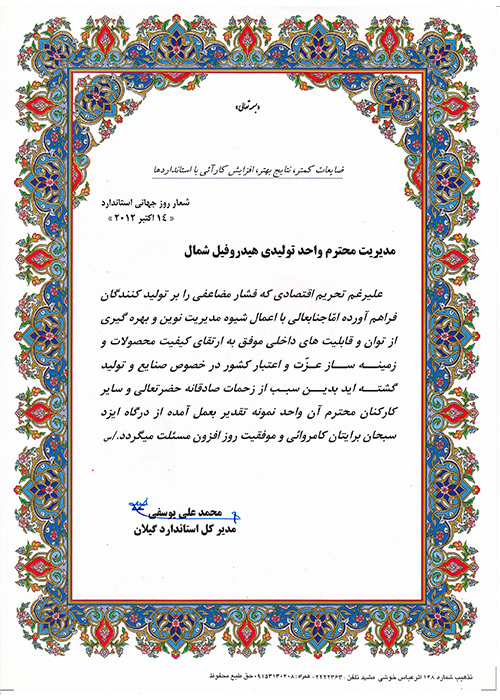 «بسمه تعالی»
ضایعات کمتر، نتایج بهتر، افزایش کارآئی با استانداردها
شعار روز جهانی استاندارد
« ۱۴ اکتبر ۲۰۱۲ »
مدیریت محترم واحد تولیدی هیدروفیل شمال
علیرغم تحریم اقتصادی که فشار مضاعفی را بر تولید کنندگان
فراهم آورده امّاجنابعالی با اعمال شیوه مدیریت نوین و بهره گیری
از توان و قابلیت های داخلی موفق به ارتقای کیفیت محصولات و
زمینه ساز عزّت و اعتبار کشور در خصوص صنایع و تولید
گشته اید بدین سبب از زحمات صادقانه حضرتعالی و سایر
کارکنان محترم آن واحد نمونه تقدیر بعمل آمده از درگاه ایزد
سبحان برایتان کامروائی و موفقیت روز افزون مسئلت میگردد./س
محمد علی یوسفی
مدیر کل استاندارد گیلان
تذهیب شماره ۱۳۸ اثرعباس خوشی مشهد تلفن: ۲۲۲۲۳۶۳- همراه: ۰۹۱۵۳۱۳۰۲۰۸ حق طبع محفوظ